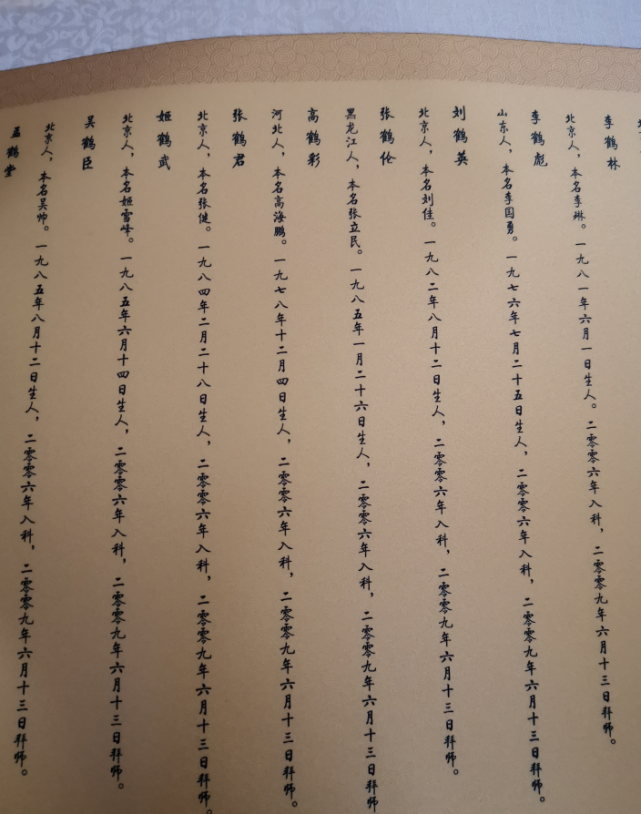 李鹤林
北京人，本名李琳。一九八一年六月一日生人。二零零六年入科，二零零九年六月十三日拜师。
李鹤彪
山东人，本名李国勇。一九七六年七月二十五日生人，二零零六年入科，二零零九年六月十三日拜师。
刘鹤英
北京人，本名刘佳。一九八二年八月十二日生人，二零零六年入科，二零零九年六月十三日拜师。
张鹤伦
黑龙江人，本名张立民。一九八五年一月二十六日生人，二零零六年入科，二零零九年六月十三日拜师
高鹤彩
河北人，本名高海鹏。一九七八年十二月四日生人，二零零六年入科，二零零九年六月十三日拜师。
张鹤君
北京人，本名张健。一九八四年二月二十八日生人，二零零六年入科，二零零九年六月十三日拜师。
姬鹤武
北京人，本名姬雪峰。一九八五年六月十四日生人，二零零六年入科，二零零九年六月十三日拜师。
吴鹤臣
北京人，本名吴帅。一九八五年八月十二日生人，二零零六年入科，二零零九年六月十三日拜师。
孟鹤堂